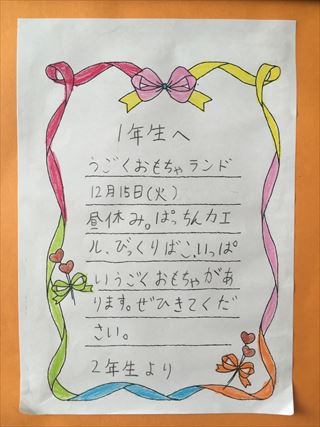 1年生へ
うごくおもちゃランド
12月15日(火)
昼休み。ぱっちんカエ
ル、びっくりばこ、いっぱ
いうごくおもちゃがあ
ります。ぜひきてくだ
さい。
2年生より